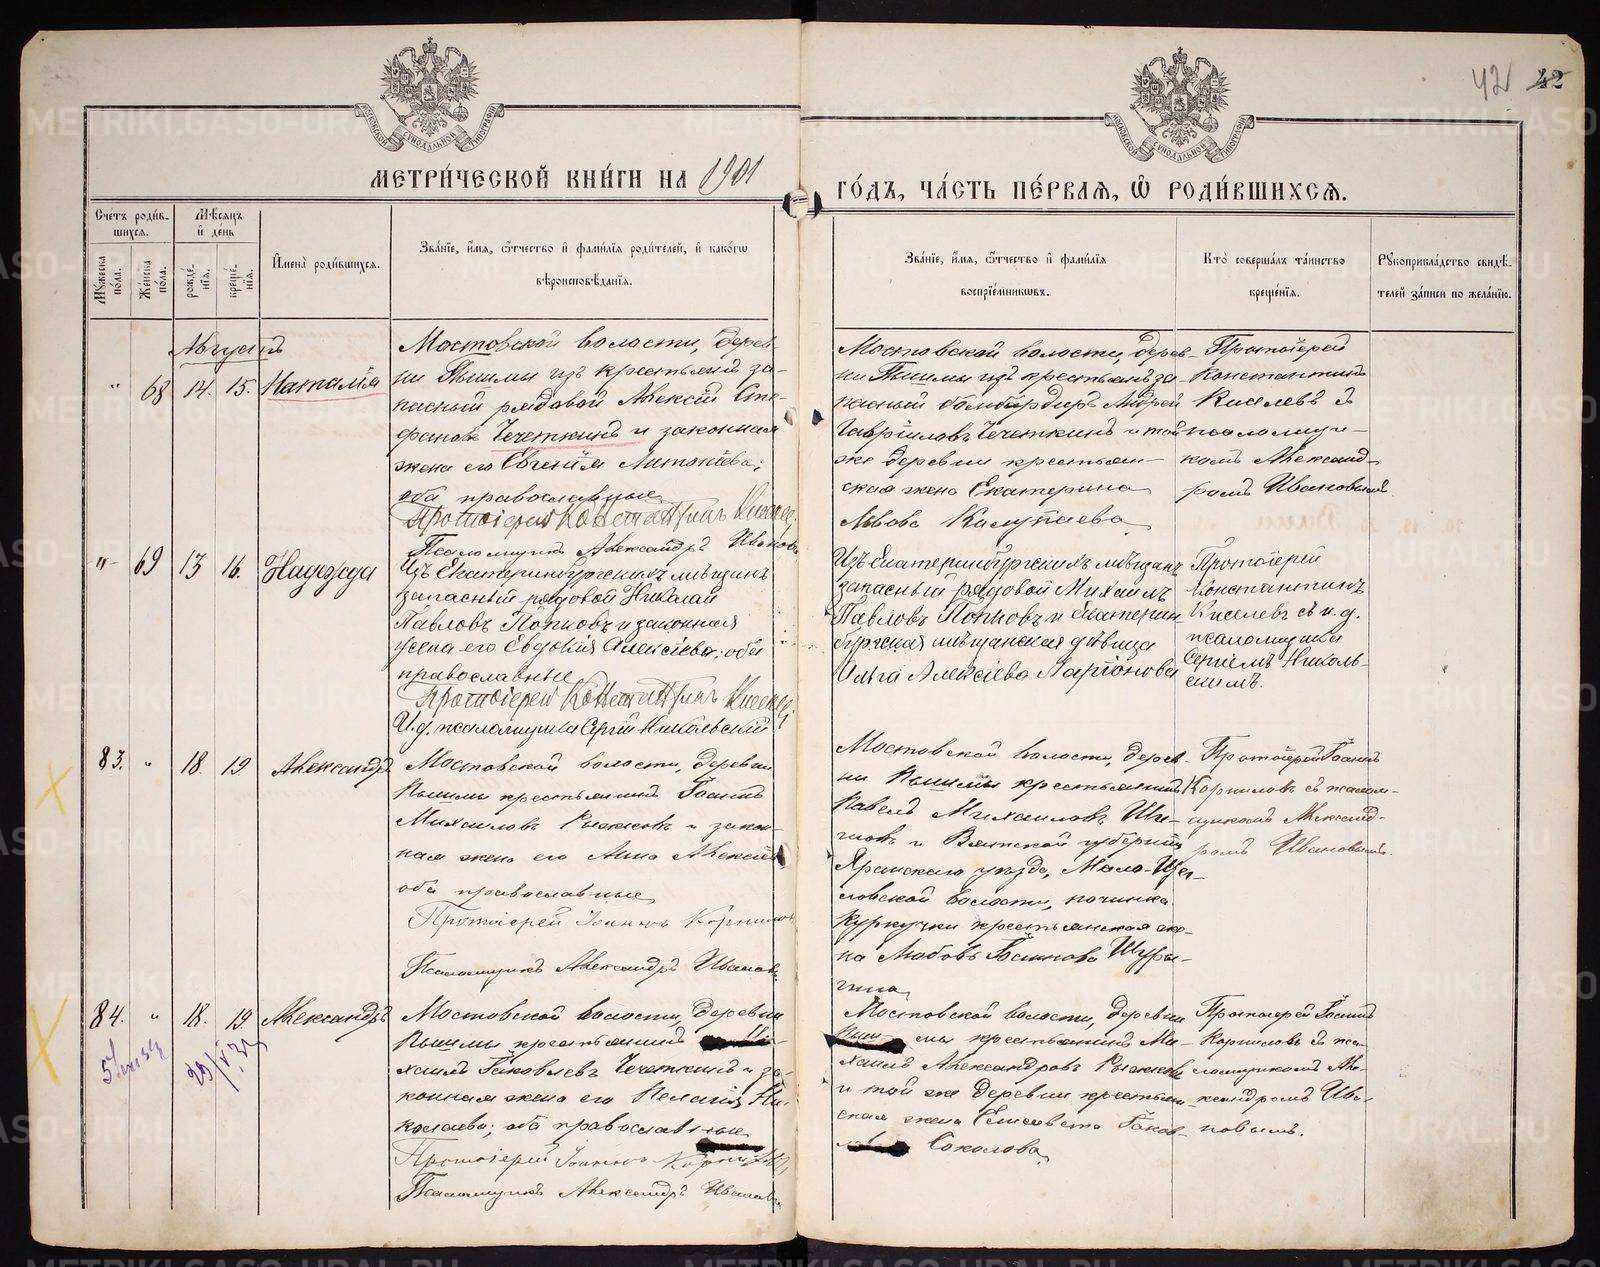 42 42
МЕТРИ́ЧЕСКОЙ КНИ́ГИ НА 1901
ГО́ДЪ, ЧА́СТЬ ПЕ́РВАѦ, Ѿ РОДИ́ВШИХСѦ.
Сче́тъ роди́в-
шихсѧ.
Мѣ́сѧцъ
и҆ де́нь
И҆мена̀ роди́вшихсѧ.
Зва́нїе, и҆́мѧ, ѻ҆́тчество и҆ фами́лїѧ роди́телей, и҆ како́гѡ
вѣроисповѣ́данїѧ.
Мꙋ́жеска
по́ла.
Же́нска
по́ла.
рожде́-
нїѧ.
креще́-
нїѧ.
Зва́нїе, и҆́мѧ, ѻ҆́тчество и҆ фами́лїѧ
воспрїе́мникѡвъ.
Кто̀ соверша́лъ та́инство
креще́нїѧ.
Рꙋкоприкла́дство свидѣ́-
телей за́писи по жела́нїю.
Августъ
" 68 14. 15. Наталія
Мостовской волости, дерев-
ни Пышмы изъ крестьянъ за-
пасный рядовой Алексѣй Сте-
фановъ Чечеткинъ и законная
жена его Евгенія Антоніева;
оба православные
Протоіерей Константинъ Киселев
Псаломщикъ Александръ Иванов
Мостовской волости, дерев-
ни Пышмы изъ крестьянъ за-
пасный бомбардиръ Андрей
Гавріиловъ Чечеткинъ и той
же деревни крестьян-
ская жена Екатерина
Львова Калугаева
Протоіерей
Константинъ
Киселевъ съ
псаломщи-
комъ Александ-
ромъ Ивановымъ
" 69 13 16. Надежда
Изъ Екатеринбургскихъ мѣщанъ
запасный рядовой Николай
Павловъ Попковъ и законная
жена его Евдокія Алексіева; оба
православные
Протоіерей Константинъ Киселев
И. д. псаломщика Сергій Никольскій
Изъ Екатеринбургскихъ мѣщанъ
запасный рядовой Михаилъ
Павловъ Попковъ и Екатерин
бургская мѣщанская дѣвица
Ольга Алексіева Ларіонова
Протоіерей
Константинъ
Киселевъ съ и. д.
псаломщика
Сергіемъ Николь-
скимъ.
83. " 18 19. Александръ
Мостовской волости, деревни
Пышмы крестьянинъ Іоаннъ
Михаиловъ Рыжковъ и закон-
ная жена его Анна Алексіев
оба православные
Протоіерей Іоаннъ Корнилов
Псаломщикъ Александръ Иванов
Мостовской волости, дерев-
ни Пышмы крестьянинъ
Павелъ Михаиловъ
и Вятской губерніи
Яранскаго уѣзда,
ловской волости, починка
крестьянская же-
на Любовь Іоаннова Шуры-
гина
Протоіерей Іоаннъ
Корниловъ съ псалом-
щикомъ Александ-
ромъ Ивановымъ.
84. " 18. 19. Александръ
Мостовской волости, деревни
Пышмы крестьянинъ Ми-
хаилъ Іаковлевъ Чечеткинъ и за-
конная жена его Пелагія Ни-
колаева; оба православные
Протоіерей Іоаннъ Корнилов
Псаломщикъ Александръ Иванов
Мостовской волости, деревни
Пыш мы крестьянинъ Ми-
хаилъ Александровъ Рыжков
и той же деревни крестьян-
ская жена Елисавета Іаков-
Соколова
Протоіерей Іоаннъ
Корниловъ съ пса-
ломщикомъ Але-
ксандромъ Ива-
новымъ.
METRIKI.GASO-URAL.RU